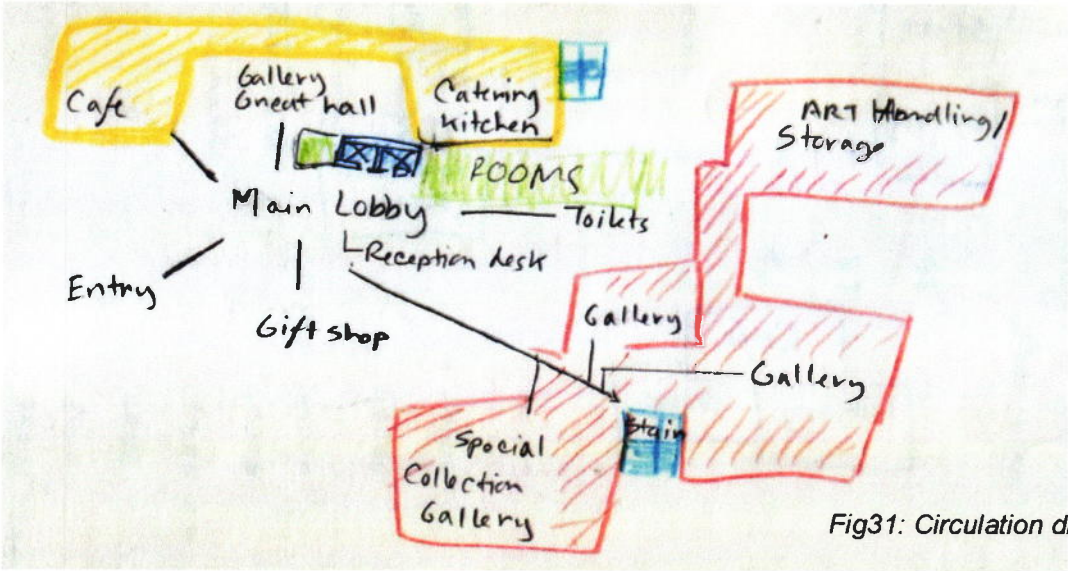 Cafe
Gallery
Great hall
Catering
kitchen
ART Handling/
Storage
ROOMS
Main Lobby
Toilets
Reception desk
Entry
Gift shop
Gallery
Gallery
Stair
Special
Collection
Gallery
Fig31: Circulation di